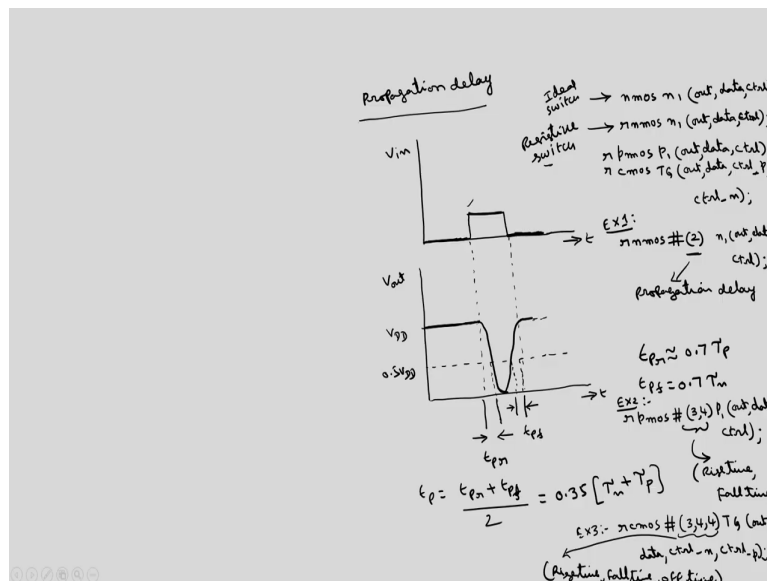 Propagation delay
Ideal switch → nmos n1 (out, data, ctrl
Resistive switch → rnmos n1 (out, data, ctrl);
rpmos P1 (out, data, ctrl)
rcmos TG (out, data, ctrl_p
ctrl_n);
Vin
t
EX1:
rnmos #(2) n1 (out, dat
ctrl);
Propagation delay
Vout
VDD
0.5VDD
t
tpr
tpf
tpr ≈ 0.7 τp
tpf = 0.7 τn
EX2:-
rpmos #(3,4) P1 (out, dat
ctrl);
(Risetime,
Falltim
tp = tpr + tpf / 2 = 0.35 [τn + τp]
EX3:- rcmos #(3,4,4) TG (out
data, ctrl_n, ctrl_p);
(Risetime, falltime, off time)